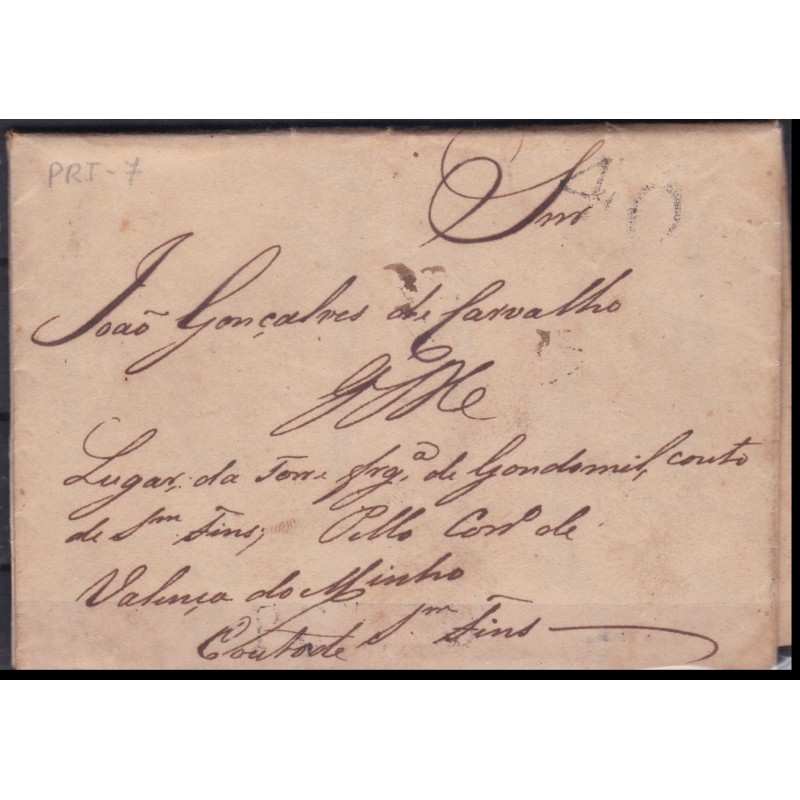 PRT-7
Snr
40
João Gonçalves de Carvalho
Lugar da Torre frg.ª de Gondomil, couto
de Sm Fins; Pello Corrº de
Valença do Minho
Couto de Sm Fins